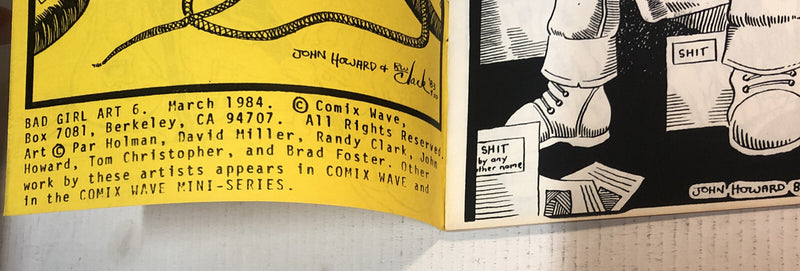 JOHN HOWARD & R.W. Clark '83
BAD GIRL ART 6. March 1984. © Comix Wave,
Box 7081, Berkeley, CA 94707. All Rights Reserved.
Art © Par Holman, David Miller, Randy Clark, John
Howard, Tom Christopher, and Brad Foster. Other
work by these artists appears in COMIX WAVE and
in the COMIX WAVE MINI-SERIES.
SHIT
SHIT
by any
other name
JOHN HOWARD 8